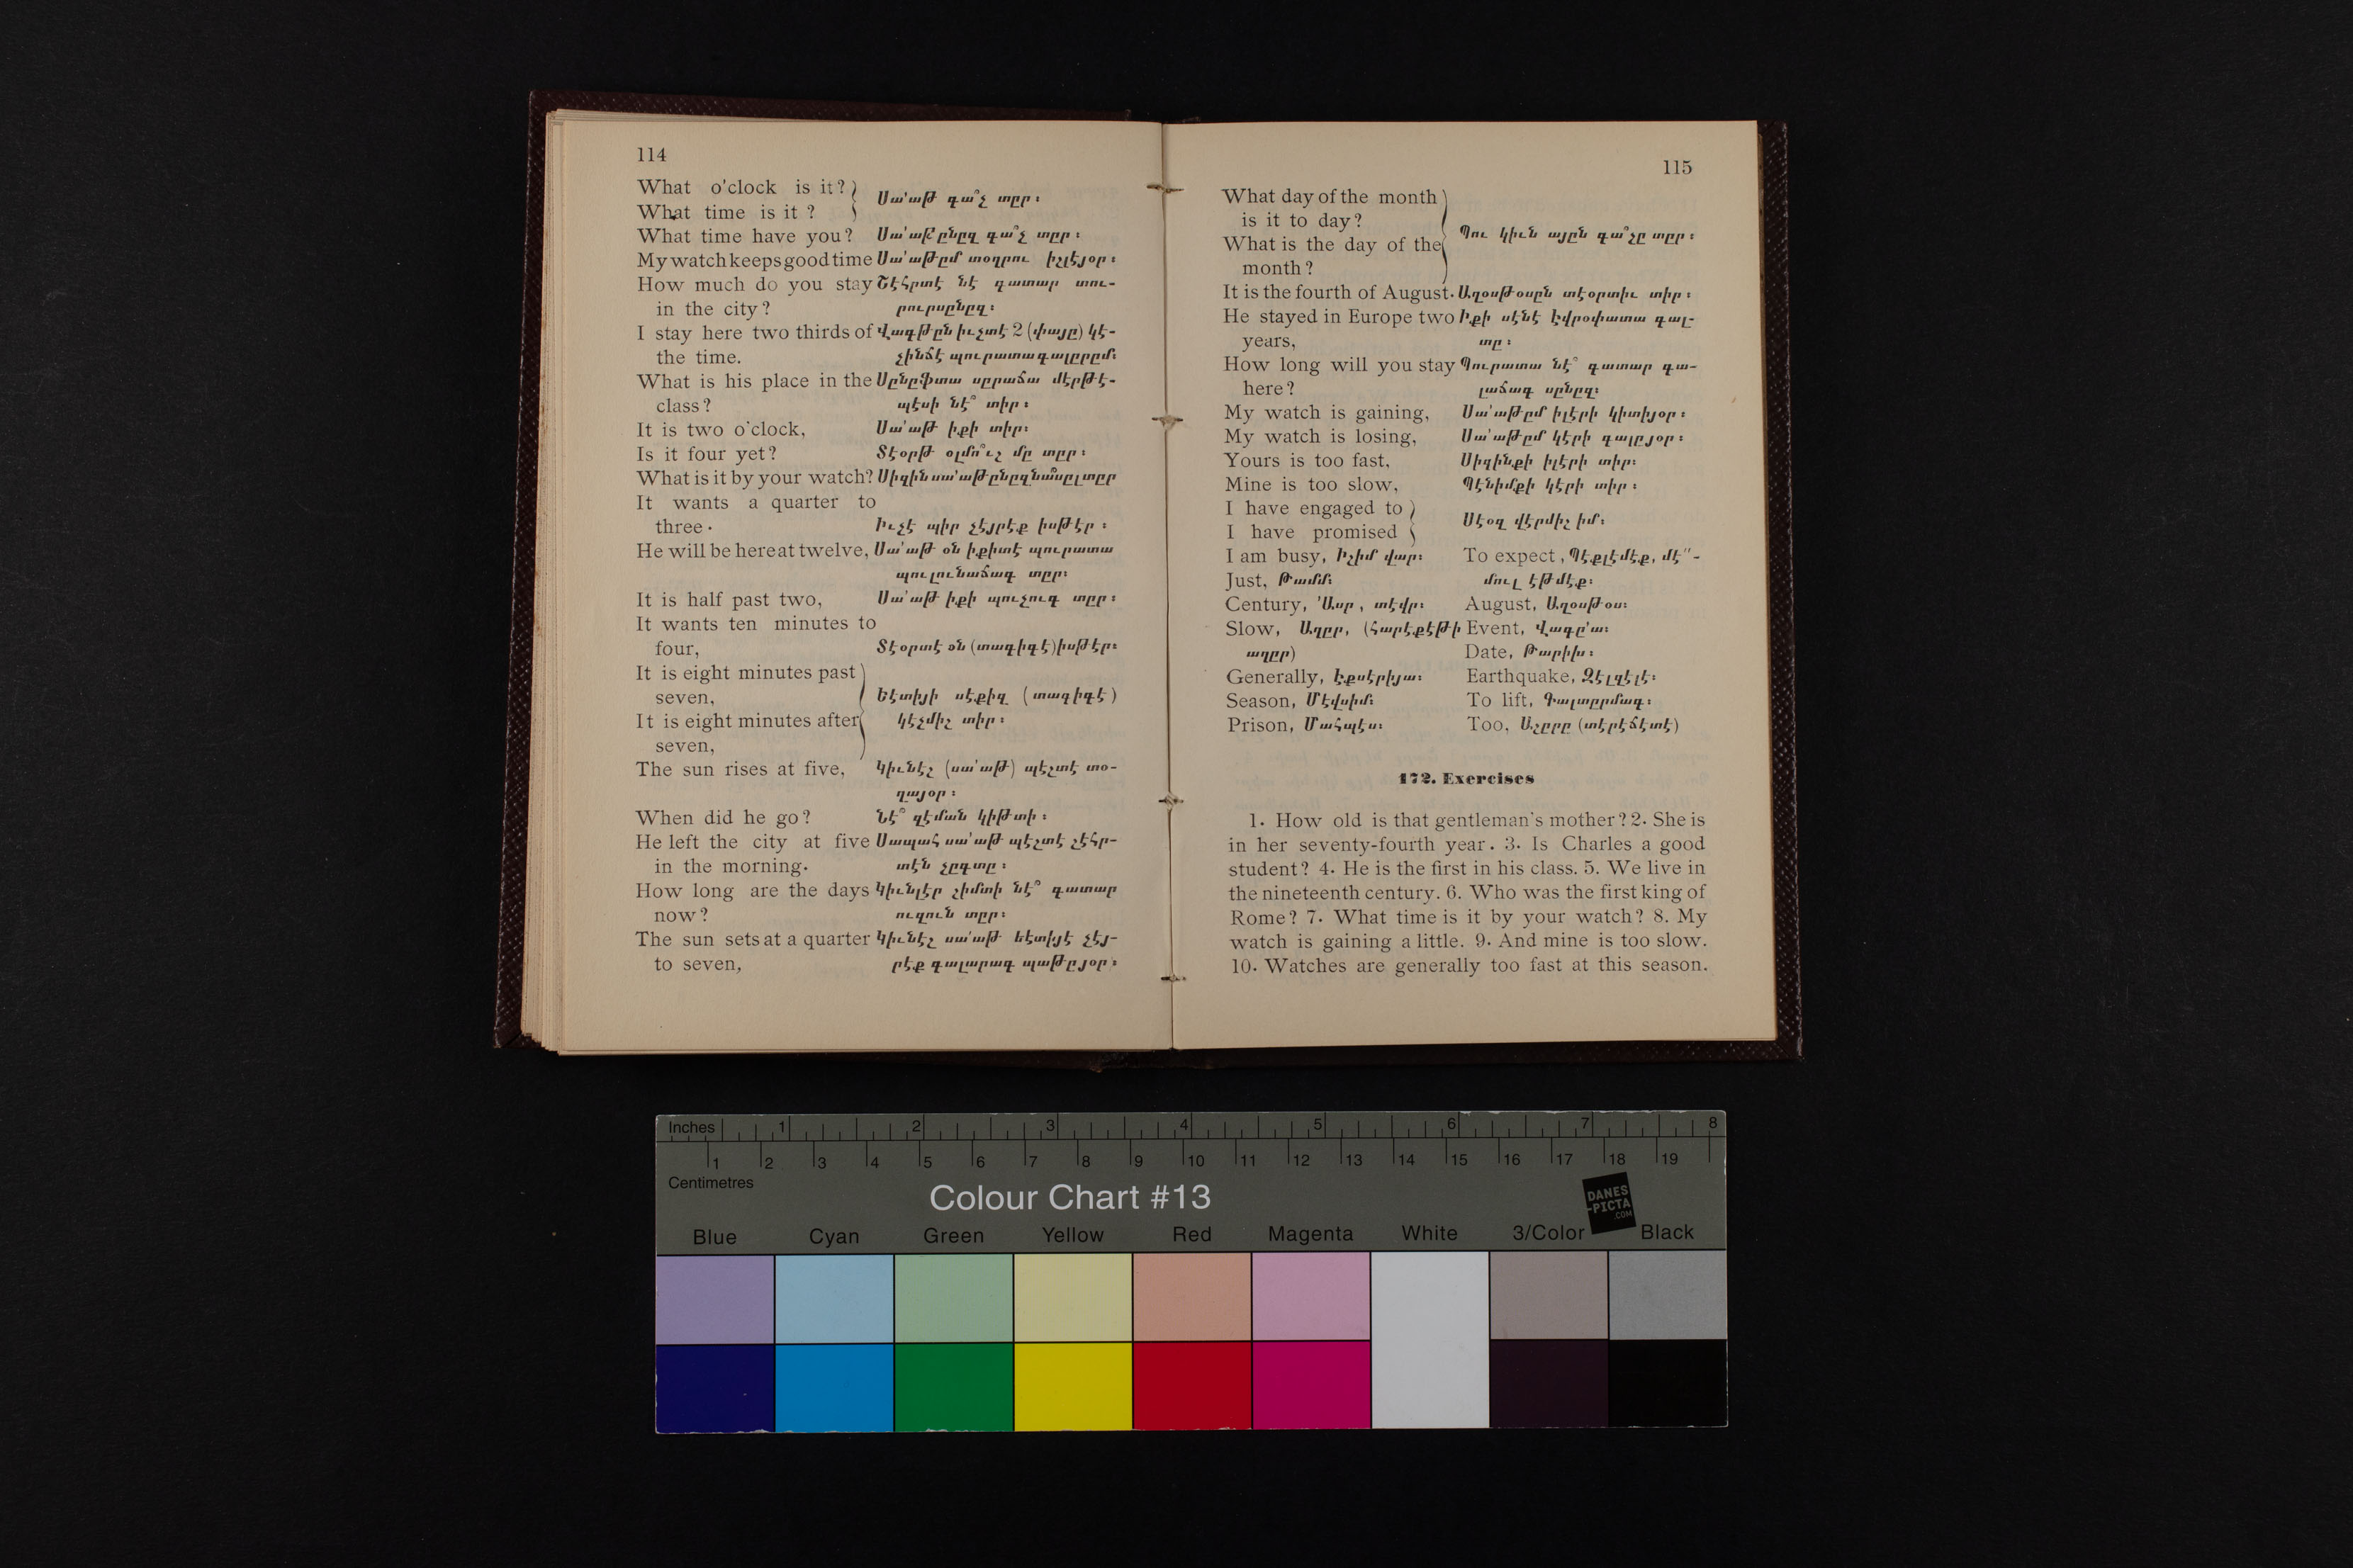 114
What o'clock is it?
What time is it ?
Սա՛աթ գա՞չ տըր ։
What time have you? Սա՛աթընըզ գա՞չ տըր ։
My watch keeps good time Սա՛աթըմ տօղրու իշլէյօր ։
How much do you stay Շէհրտէ նէ գատար տու-
in the city? րուրսընըզ։
I stay here two thirds of Վագթըն իւչտէ 2 (փայը) կէ-
the time. չինճէ պուրատա գալըրըմ։
What is his place in the Սընըֆտա սըրաճա մէրթէ-
class? պէսի նէ՞ տիր ։
It is two o'clock, Սա՛աթ իքի տիր։
Is it four yet? Տէօրթ օլմո՞ւշ մը տըր ։
What is it by your watch? Սիզին սա՛աթընըզ նա՞սըլ տըր
It wants a quarter to
three. Իւչէ պիր չէյրէք իսթէր ։
He will be here at twelve, Սա՛աթ օն իքիտէ պուրատա
պուլունաճագ տըր։
It is half past two, Սա՛աթ իքի պուչուգ տըր ։
It wants ten minutes to
four, Տէօրտէ օն (տագիգէ) իսթէր։
It is eight minutes past
seven,
It is eight minutes after
seven,
Եէտիյի սէքիզ (տագիգէ)
կէչմիշ տիր ։
The sun rises at five, Կիւնէշ (սա՛աթ) պէշտէ տօ-
ղայօր ։
When did he go? Նէ՞ զէման կիթտի ։
He left the city at five Սապահ սա՛աթ պէշտէ շէհր-
in the morning. տէն չըգտը ։
How long are the days Կիւնլէր շիմտի նէ՞ գատար
now? ուզուն տըր։
The sun sets at a quarter Կիւնէշ սա՛աթ եէտիյէ չէյ-
to seven, րէք գալարագ պաթըյօր ։
115
What day of the month
is it to day?
What is the day of the
month?
Պու կիւն այըն գա՞չը տըր ։
It is the fourth of August. Աղօսթօսըն տէօրտիւ տիր ։
He stayed in Europe two Իքի սէնէ Էվրօփատա գալ-
years, տը ։
How long will you stay Պուրատա նէ՞ գատար գա-
here? լաճագ սընըզ։
My watch is gaining, Սա՛աթըմ իլէրի կիտիյօր ։
My watch is losing, Սա՛աթըմ կէրի գալըյօր ։
Yours is too fast, Սիզինքի իլէրի տիր։
Mine is too slow, Պէնիմքի կէրի տիր ։
I have engaged to
I have promised
Սէօզ վէրմիշ իմ։
I am busy, Իշիմ վար։ To expect, Պէքլէմէք, մէ՛՛-
Just, Թամմ։ մուլ էթմէք։
Century, ՛Ասր , տէվր։ August, Աղօսթօս։
Slow, Աղըր, (հարէքէթի Event, Վագը՛ա։
աղըր) Date, Թարիխ ։
Generally, Էքսէրիյա։ Earthquake, Զէլզէլէ։
Season, Մէվսիմ։ To lift, Գալտըրմագ։
Prison, Մահպէս։ Too, Աշըրը (տէրէճէտէ)
172. Exercises
1. How old is that gentleman's mother? 2. She is
in her seventy-fourth year. 3. Is Charles a good
student? 4. He is the first in his class. 5. We live in
the nineteenth century. 6. Who was the first king of
Rome? 7. What time is it by your watch? 8. My
watch is gaining a little. 9. And mine is too slow.
10. Watches are generally too fast at this season.
Inches 1 2 3 4 5 6 7 8
1 2 3 4 5 6 7 8 9 10 11 12 13 14 15 16 17 18 19
Centimetres
Colour Chart #13
DANES
-PICTA
.COM
Blue Cyan Green Yellow Red Magenta White 3/Color Black